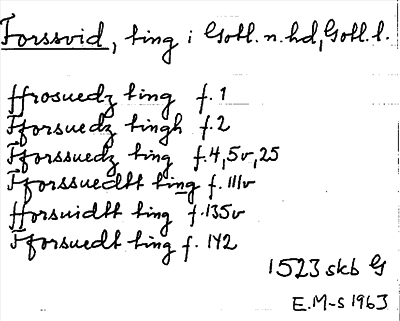 Forssvid, ting i Gotl. n. hd, Gotl. l.
ffrosuedz ting f. 1
Fforsuedz tingh f. 2
Fforssuedz ting f. 4, 5v, 25
Fforssuedtt ting f. 111v
fforsuidtt ting f. 135v
Fforsuedt ting f. 142
1523 skb G
E.M-s 1963